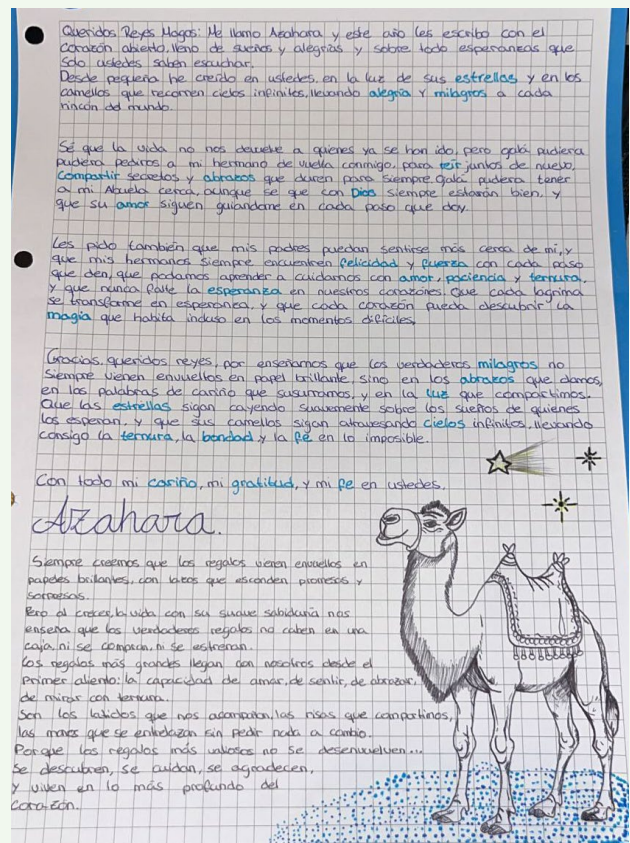 Queridos Reyes Magos: Me llamo Azahara y este año les escribo con el
corazón abierto, lleno de sueños y alegrías y sobre todo esperanzas que
solo ustedes saben escuchar.
Desde pequeña he creído en ustedes, en la luz de sus estrellas y en los
camellos que recorren cielos infinitos, llevando alegría y milagros a cada
rincón del mundo.
Sé que la vida no nos devuelve a quienes ya se han ido, pero ojalá pudiera
pudiera pediros a mi hermano de vuelta conmigo, para reir juntos de nuevo,
compartir secretos y abrazos que duren para siempre. Ojalá pudiera tener
a mi Abuela cerca, aunque se que con Dios siempre estarán bien, y
que su amor siguen guiandome en cada paso que doy.
Les pido también que mis padres puedan sentirse más cerca de mi, y
que mis hermanos siempre encuentren felicidad y fuerza con cada paso
que den, que podamos aprender a cuidarnos con amor, paciencia y ternura,
y que nunca falte la esperanza en nuestros corazones. Que cada lagrima
se transforme en esperanza, y que cada corazón pueda descubrir la
magia que habita incluso en los momentos difíciles.
Gracias, queridos reyes, por enseñarnos que los verdaderos milagros no
siempre vienen envueltos en papel brillante, sino en los abrazos que damos,
en las palabras de cariño que susurramos, y en la luz que compartimos.
Que las estrellas sigan cayendo suavemente sobre los sueños de quienes
los esperan, y que sus camellos sigan atravesando cielos infinitos, llevando
consigo la ternura, la bondad y la fé en lo imposible.
Con todo mi cariño, mi gratitud, y mi fe en ustedes,
Azahara.
Siempre creemos que los regalos vienen envueltos en
papeles brillantes, con lazos que esconden promesas y
sorpresas.
Pero al crecer, la vida con su suave sabiduría nos
enseña que los verdaderos regalos no caben en una
caja, ni se compran, ni se estrenan.
Los regalos más grandes llegan con nosotros desde el
primer aliento: la capacidad de amar, de sentir, de abrazar,
de mirar con ternura.
Son los latidos que nos acompañan, las risas que compartimos,
las manos que se entrelazan sin pedir nada a cambio.
Porque los regalos más valiosos no se desenvuelven...
se descubren, se cuidan, se agradecen,
y viven en lo más profundo del
corazón.